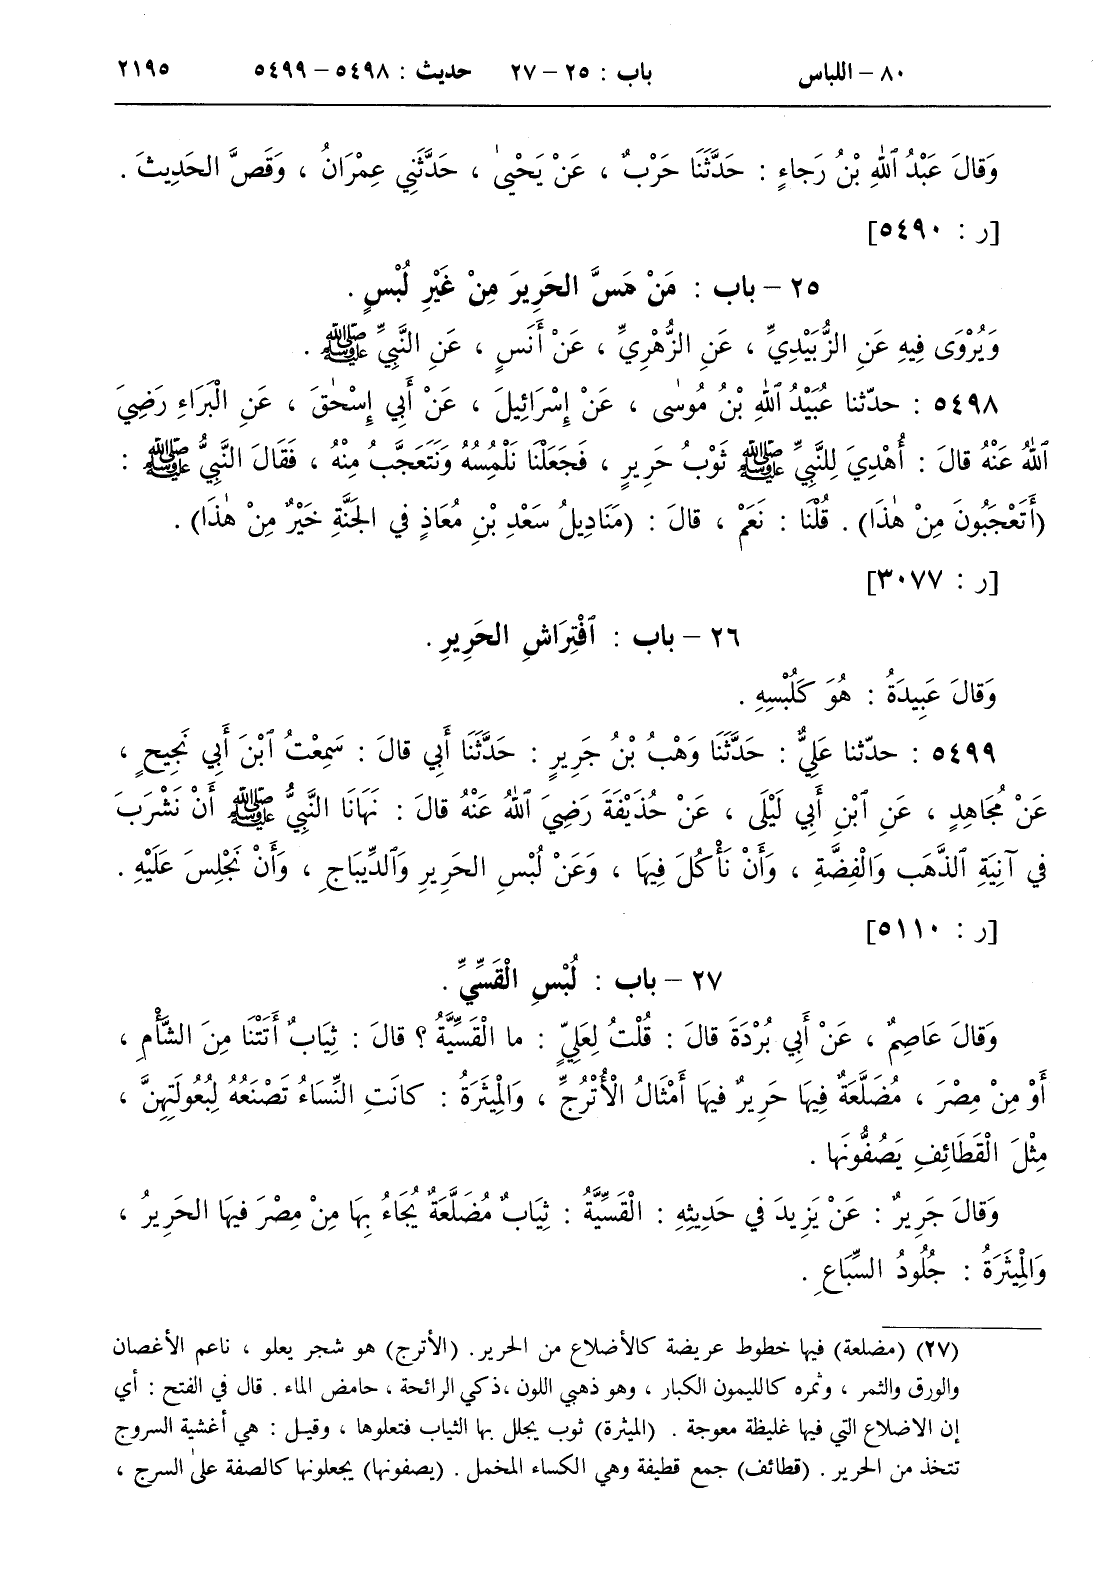 ٨٠ - اللباس باب : ٢٥ - ٢٧ حديث : ٥٤٩٨ - ٥٤٩٩ ٢١٩٥
وَقالَ عَبْدُ ٱللهِ بْنُ رَجاءٍ : حَدَّثَنَا حَرْبٌ ، عَنْ يَحْيىٰ ، حَدَّثَنِي عِمْرَانُ ، وَقَصَّ الحَدِيثَ .
[ر : ٥٤٩٠]
٢٥ - باب : مَنْ مَسَّ الحَرِيرَ مِنْ غَيْرِ لُبْسٍ .
وَيُرْوَى فِيهِ عَنِ الزُّبَيْدِيِّ ، عَنِ الزُّهْرِيِّ ، عَنْ أَنَسٍ ، عَنِ النَّبِيِّ ﷺ .
٥٤٩٨ : حدّثنا عُبَيْدُ ٱللهِ بْنُ مُوسٰى ، عَنْ إِسْرَائِيلَ ، عَنْ أَبِي إِسْحٰقَ ، عَنِ الْبَرَاءِ رَضِيَ
ٱللهُ عَنْهُ قالَ : أُهْدِيَ لِلنَّبِيِّ ﷺ ثَوْبُ حَرِيرٍ ، فَجَعَلْنَا نَلْمُسُهُ وَنَتَعَجَّبُ مِنْهُ ، فَقَالَ النَّبِيُّ ﷺ :
(أَتَعْجَبُونَ مِنْ هٰذَا) . قُلْنَا : نَعَمْ ، قالَ : (مَنَادِيلُ سَعْدِ بْنِ مُعَاذٍ فِي الجَنَّةِ خَيْرٌ مِنْ هٰذَا) .
[ر : ٣٠٧٧]
٢٦ - باب : ٱفْتِرَاشِ الحَرِيرِ .
وَقالَ عَبِيدَةُ : هُوَ كَلُبْسِهِ .
٥٤٩٩ : حدّثنا عَلِيٌّ : حَدَّثَنَا وَهْبُ بْنُ جَرِيرٍ : حَدَّثَنَا أَبِي قالَ : سَمِعْتُ ٱبْنَ أَبِي نَجِيحٍ ،
عَنْ مُجَاهِدٍ ، عَنِ ٱبْنِ أَبِي لَيْلَى ، عَنْ حُذَيْفَةَ رَضِيَ ٱللهُ عَنْهُ قالَ : نَهَانَا النَّبِيُّ ﷺ أَنْ نَشْرَبَ
فِي آنِيَةِ ٱلذَّهَبِ وَالْفِضَّةِ ، وَأَنْ نَأْكُلَ فِيهَا ، وَعَنْ لُبْسِ الحَرِيرِ وَٱلدِّيبَاجِ ، وَأَنْ نَجْلِسَ عَلَيْهِ .
[ر : ٥١١٠]
٢٧ - باب : لُبْسِ الْقَسِّيِّ .
وَقالَ عَاصِمٌ ، عَنْ أَبِي بُرْدَةَ قالَ : قُلْتُ لِعَلِيٍّ : ما الْقَسِّيَّةُ ؟ قالَ : ثِيَابٌ أَتَتْنَا مِنَ الشَّأْمِ ،
أَوْ مِنْ مِصْرَ ، مُضَلَّعَةٌ فِيهَا حَرِيرٌ فِيهَا أَمْثَالُ الْأُتْرُجِّ ، وَالْمِيثَرَةُ : كانَتِ النِّسَاءُ تَصْنَعُهُ لِبُعُولَتِهِنَّ ،
مِثْلَ الْقَطَائِفِ يَصُفُّونَهَا .
وَقالَ جَرِيرٌ : عَنْ يَزِيدَ فِي حَدِيثِهِ : الْقَسِّيَّةُ : ثِيَابٌ مُضَلَّعَةٌ يُجَاءُ بِهَا مِنْ مِصْرَ فِيهَا الحَرِيرُ ،
وَالْمِيثَرَةُ : جُلُودُ السِّبَاعِ .
(٢٧) (مضلعة) فيها خطوط عريضة كالأضلاع من الحرير. (الأترج) هو شجر يعلو ، ناعم الأغصان
والورق والثمر ، وثمره كالليمون الكبار ، وهو ذهبي اللون ،ذكي الرائحة ، حامض الماء . قال في الفتح : أي
إن الاضلاع التي فيها غليظة معوجة . (الميثرة) ثوب يجلل بها الثياب فتعلوها ، وقيل : هي أغشية السروج
تتخذ من الحرير . (قطائف) جمع قطيفة وهي الكساء المخمل . (يصفونها) يجعلونها كالصفة علىٰ السرج ،